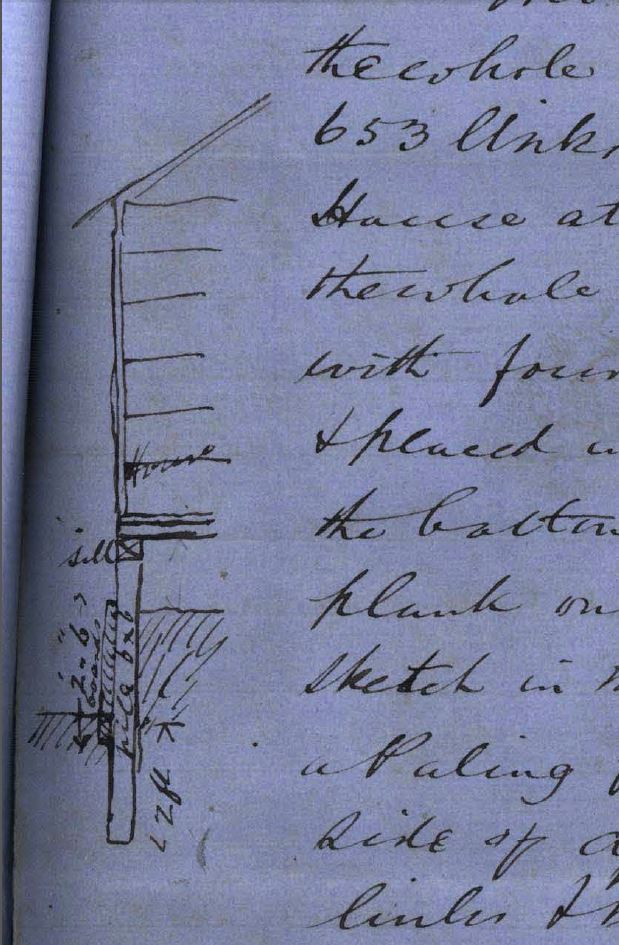 the whole
653 links
House at
the whole
with four
& placed
the bottom
plank on
sketch in
a Paling
side of
links &
House
sill
boards
pile 6x6
2 ft